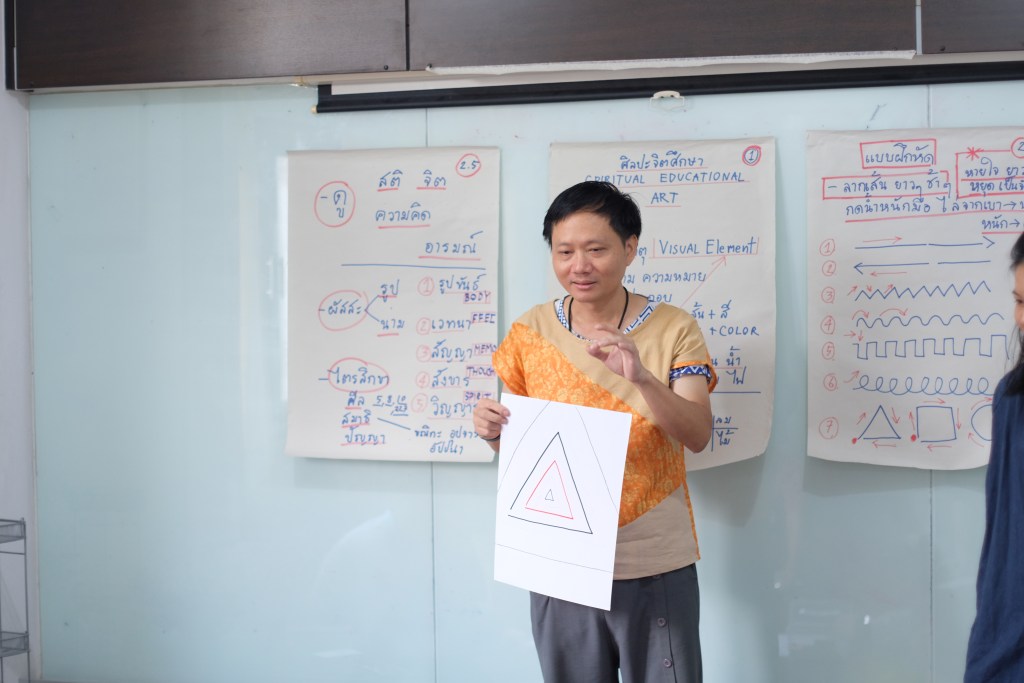 2.5
สติ จิต
- ดู
ความคิด
อารมณ์
- ผัสสะ
รูป
นาม
① รูปขันธ์
BODY
② เวทนา FEEL
③ สัญญา MEMO
④ สังขาร THOUGH
⑤ วิญญา
- ไตรสิกขา
ศีล 5, 8, 10
สมาธิ
ปัญญา
ขณิกะ อุปจาร
อัปปนา
1
ศิลปะจิตศึกษา
SPIRITUAL EDUCATIONAL
ART
ตุ VISUAL Element
ความหมาย
เส้น + สี
+ COLOR
น้ำ
ไฟ
ลม
ไม้
แบบฝึกหัด
2
- ลากเส้น ยาวๆ ซ้ำๆ
กดน้ำหนักมือ ไล่จากเบา →
หนัก →
* หายใจ ยาว
หยุด เป็น
①
②
③
④
⑤
⑥
⑦